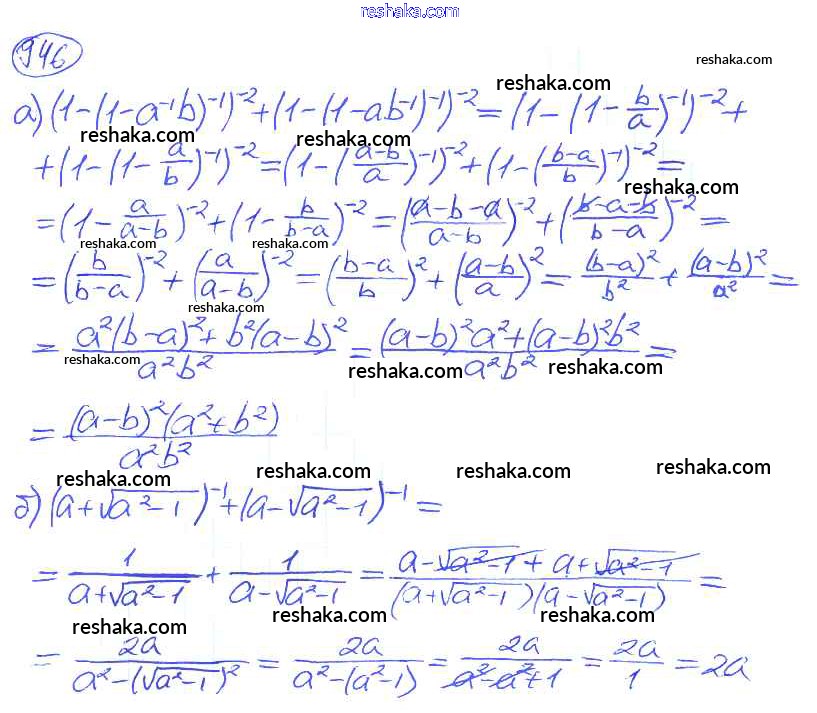 reshaka.com
946
reshaka.com
reshaka.com
а) (1-(1-a⁻¹b)⁻¹)⁻²+(1-(1-ab⁻¹)⁻¹)⁻²=(1-(1-b/a)⁻¹)⁻²+
reshaka.com reshaka.com
+(1-(1-a/b)⁻¹)⁻²=(1-((a-b)/a)⁻¹)⁻²+(1-((b-a)/b)⁻¹)⁻²=
reshaka.com
=(1-a/(a-b))⁻²+(1-b/(b-a))⁻²=((a-b-a)/(a-b))⁻²+((b-a-b)/(b-a))⁻²=
reshaka.com reshaka.com
=(b/(b-a))⁻²+(a/(a-b))⁻²=((b-a)/b)²+((a-b)/a)²=(b-a)²/b²+(a-b)²/a²=
reshaka.com
=(a²(b-a)²+b²(a-b)²)/(a²b²)=((a-b)²a²+(a-b)²b²)/(a²b²)=
reshaka.com reshaka.com reshaka.com
=((a-b)²(a²+b²))/(a²b²)
reshaka.com reshaka.com reshaka.com reshaka.com
б) (a+√(a²-1))⁻¹+(a-√(a²-1))⁻¹=
=1/(a+√(a²-1))+1/(a-√(a²-1))=(a-√(a²-1)+a+√(a²-1))/((a+√(a²-1))(a-√(a²-1)))=
reshaka.com reshaka.com reshaka.com
=2a/(a²-(√(a²-1))²)=2a/(a²-(a²-1))=2a/(a²-a²+1)=2a/1=2a
reshaka.com reshaka.com reshaka.com